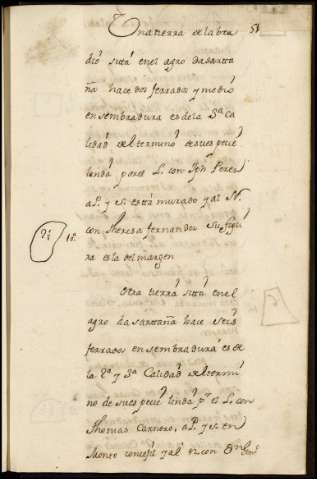 Una tierra de labra 51
dio sita en el agro da santa
ña hace dos ferrados y medio
en sembradura es de la 3ª Ca
lidad del termino de su especie
linda por el L. con Jph Peres
al P. y S. está murado y al N.
con Theresa fernandez su figu
ra es la del margen
Otra tierra sita en el
agro da santaña hace seis
ferrados en sembradura es de
la 2ª y 3ª Calidad del termi
no de su especie linda pr el L. con
Thomas Carnero, al P. y S. en
Monte concejil y al N. con